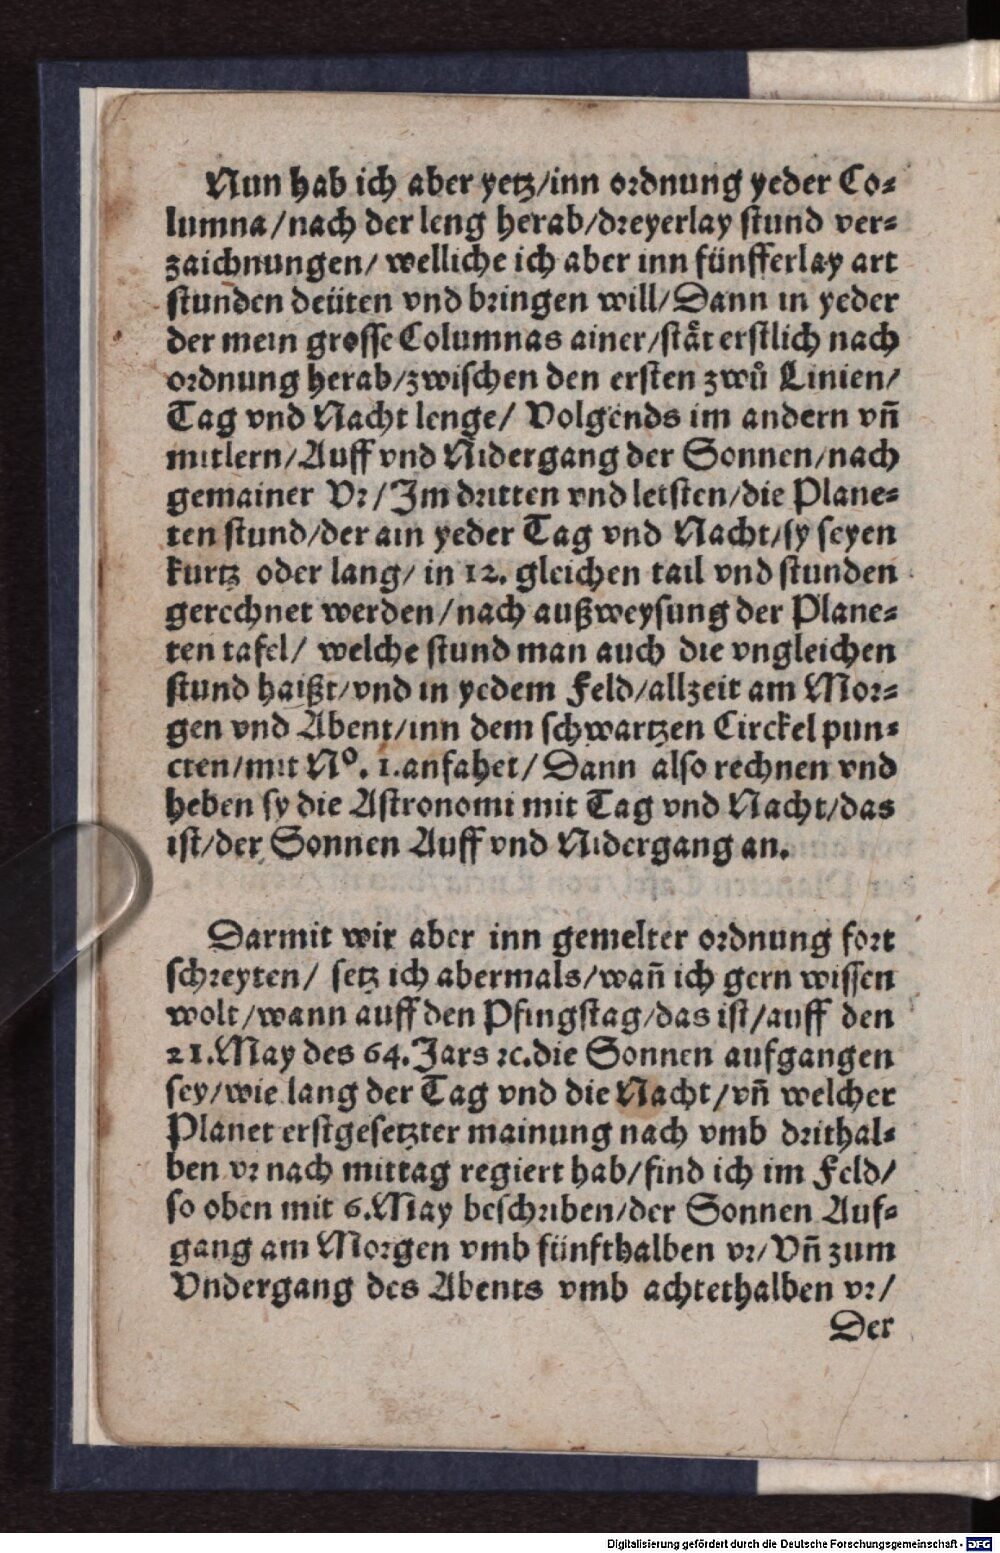 Nun hab ich aber yetz/inn ordnung yeder Co⸗
lumna/nach der leng herab/dreyerlay stund ver⸗
zaichnungen/ welliche ich aber inn fünfferlay art
stunden deüten vnd bringen will/Dann in yeder
der mein grosse Columnas ainer/stått erstlich nach
ordnung herab/zwischen den ersten zwů Linien/
Tag vnd Nacht lenge/ Volgends im andern vñ
mitlern/Auff vnd Nidergang der Sonnen/nach
gemainer Vr/Im dritten vnd letsten/die Plane⸗
ten stund/der ain yeder Tag vnd Nacht/sy seyen
kurtz oder lang/ in 12. gleichen tail vnd stunden
gerechnet werden/nach außweysung der Plane⸗
ten tafel/ welche stund man auch die vngleichen
stund haißt/vnd in yedem Feld/allzeit am Mor⸗
gen vnd Abent/inn dem schwartzen Circkel pun⸗
cten/mit Nº. 1.anfahet/Dann also rechnen vnd
heben sy die Astronomi mit Tag vnd Nacht/das
ist/der Sonnen Auff vnd Nidergang an.
Darmit wir aber inn gemelter ordnung fort
schreyten/ setz ich abermals/wañ ich gern wissen
wolt/wann auff den Pfingstag/das ist/auff den
21.May des 64.Jars ꝛc.die Sonnen aufgangen
sey/wie lang der Tag vnd die Nacht/vñ welcher
Planet erstgesetzter mainung nach vmb drithal⸗
ben vr nach mittag regiert hab/find ich im Feld/
so oben mit 6.May beschriben/der Sonnen Auf⸗
gang am Morgen vmb fünfthalben vr/Vñ zum
Vndergang des Abents vmb achtethalben vr/
Der
Digitalisierung gefördert durch die Deutsche Forschungsgemeinschaft - DFG